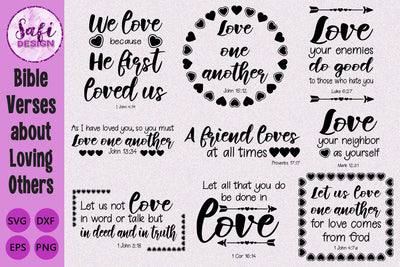 Safi
DESIGN
Bible
Verses
about
Loving
Others
SVG DXF
EPS PNG
We love
because
He first
loved us
1 John 4:19
Love
one
another
John 15:12
Love
your enemies
do good
to those who hate you
Luke 6:27
As I have loved you, so you must
Love one another
John 13:34
A friend loves
at all times
Proverbs 17:17
Love
your neighbor
as yourself
Mark 12:31
Let us not love
in word or talk but
in deed and in truth
1 John 3:18
Let all that you do
be done in
Love
1 Cor 16:14
Let us love
one another
for love comes
from God
1 John 4:7a